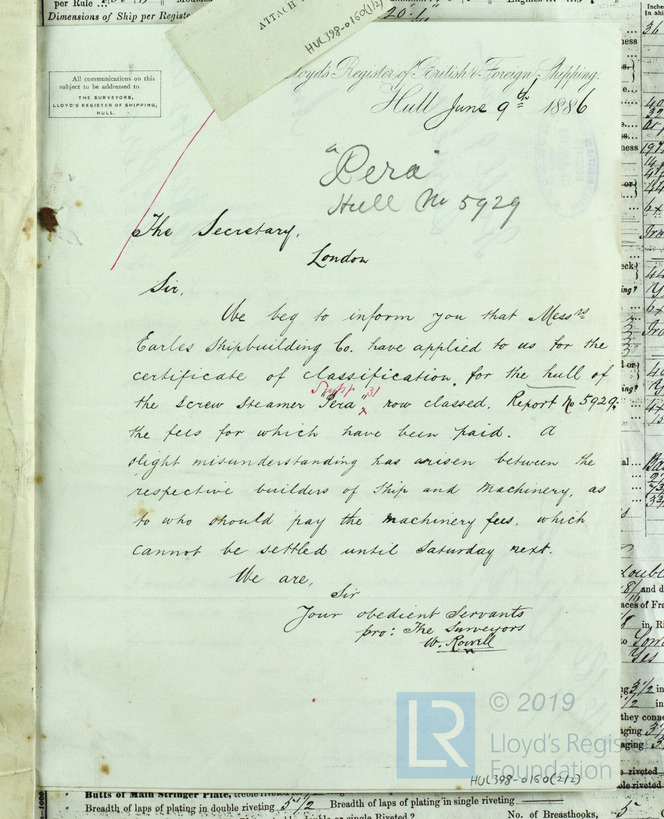 per Rule
Dimensions of Ship per Register
20.1
ATTACH
HUL398-0160(1/2)
All communications on this
subject to be addressed to
THE SURVEYORS,
LLOYD'S REGISTER OF SHIPPING,
HULL.
Lloyd's Register of British & Foreign Shipping.
Hull June 9th 1886
"Pera"
Hull No 5929
The Secretary,
London
Sir,
We beg to inform you that Messrs
Earles Shipbuilding Co. have applied to us for the
certificate of classification, for the hull of
Supp 31
the Screw Steamer "Pera" now classed. Report No 5929:
the fees for which have been paid. A
slight misunderstanding has arisen between the
respective builders of Ship and Machinery, as
to who should pay the machinery fees. which
cannot be settled until Saturday next.
We are,
Sir
Your obedient Servants
pro: The Surveyors
W. Rowell
© 2019
LR
Lloyd's Register
Foundation
HUL398-0160(2/2)
Butts of Main Stringer Plate,
Breadth of laps of plating in double riveting 5 1/2 Breadth of laps of plating in single riveting
No. of Breasthooks, 5